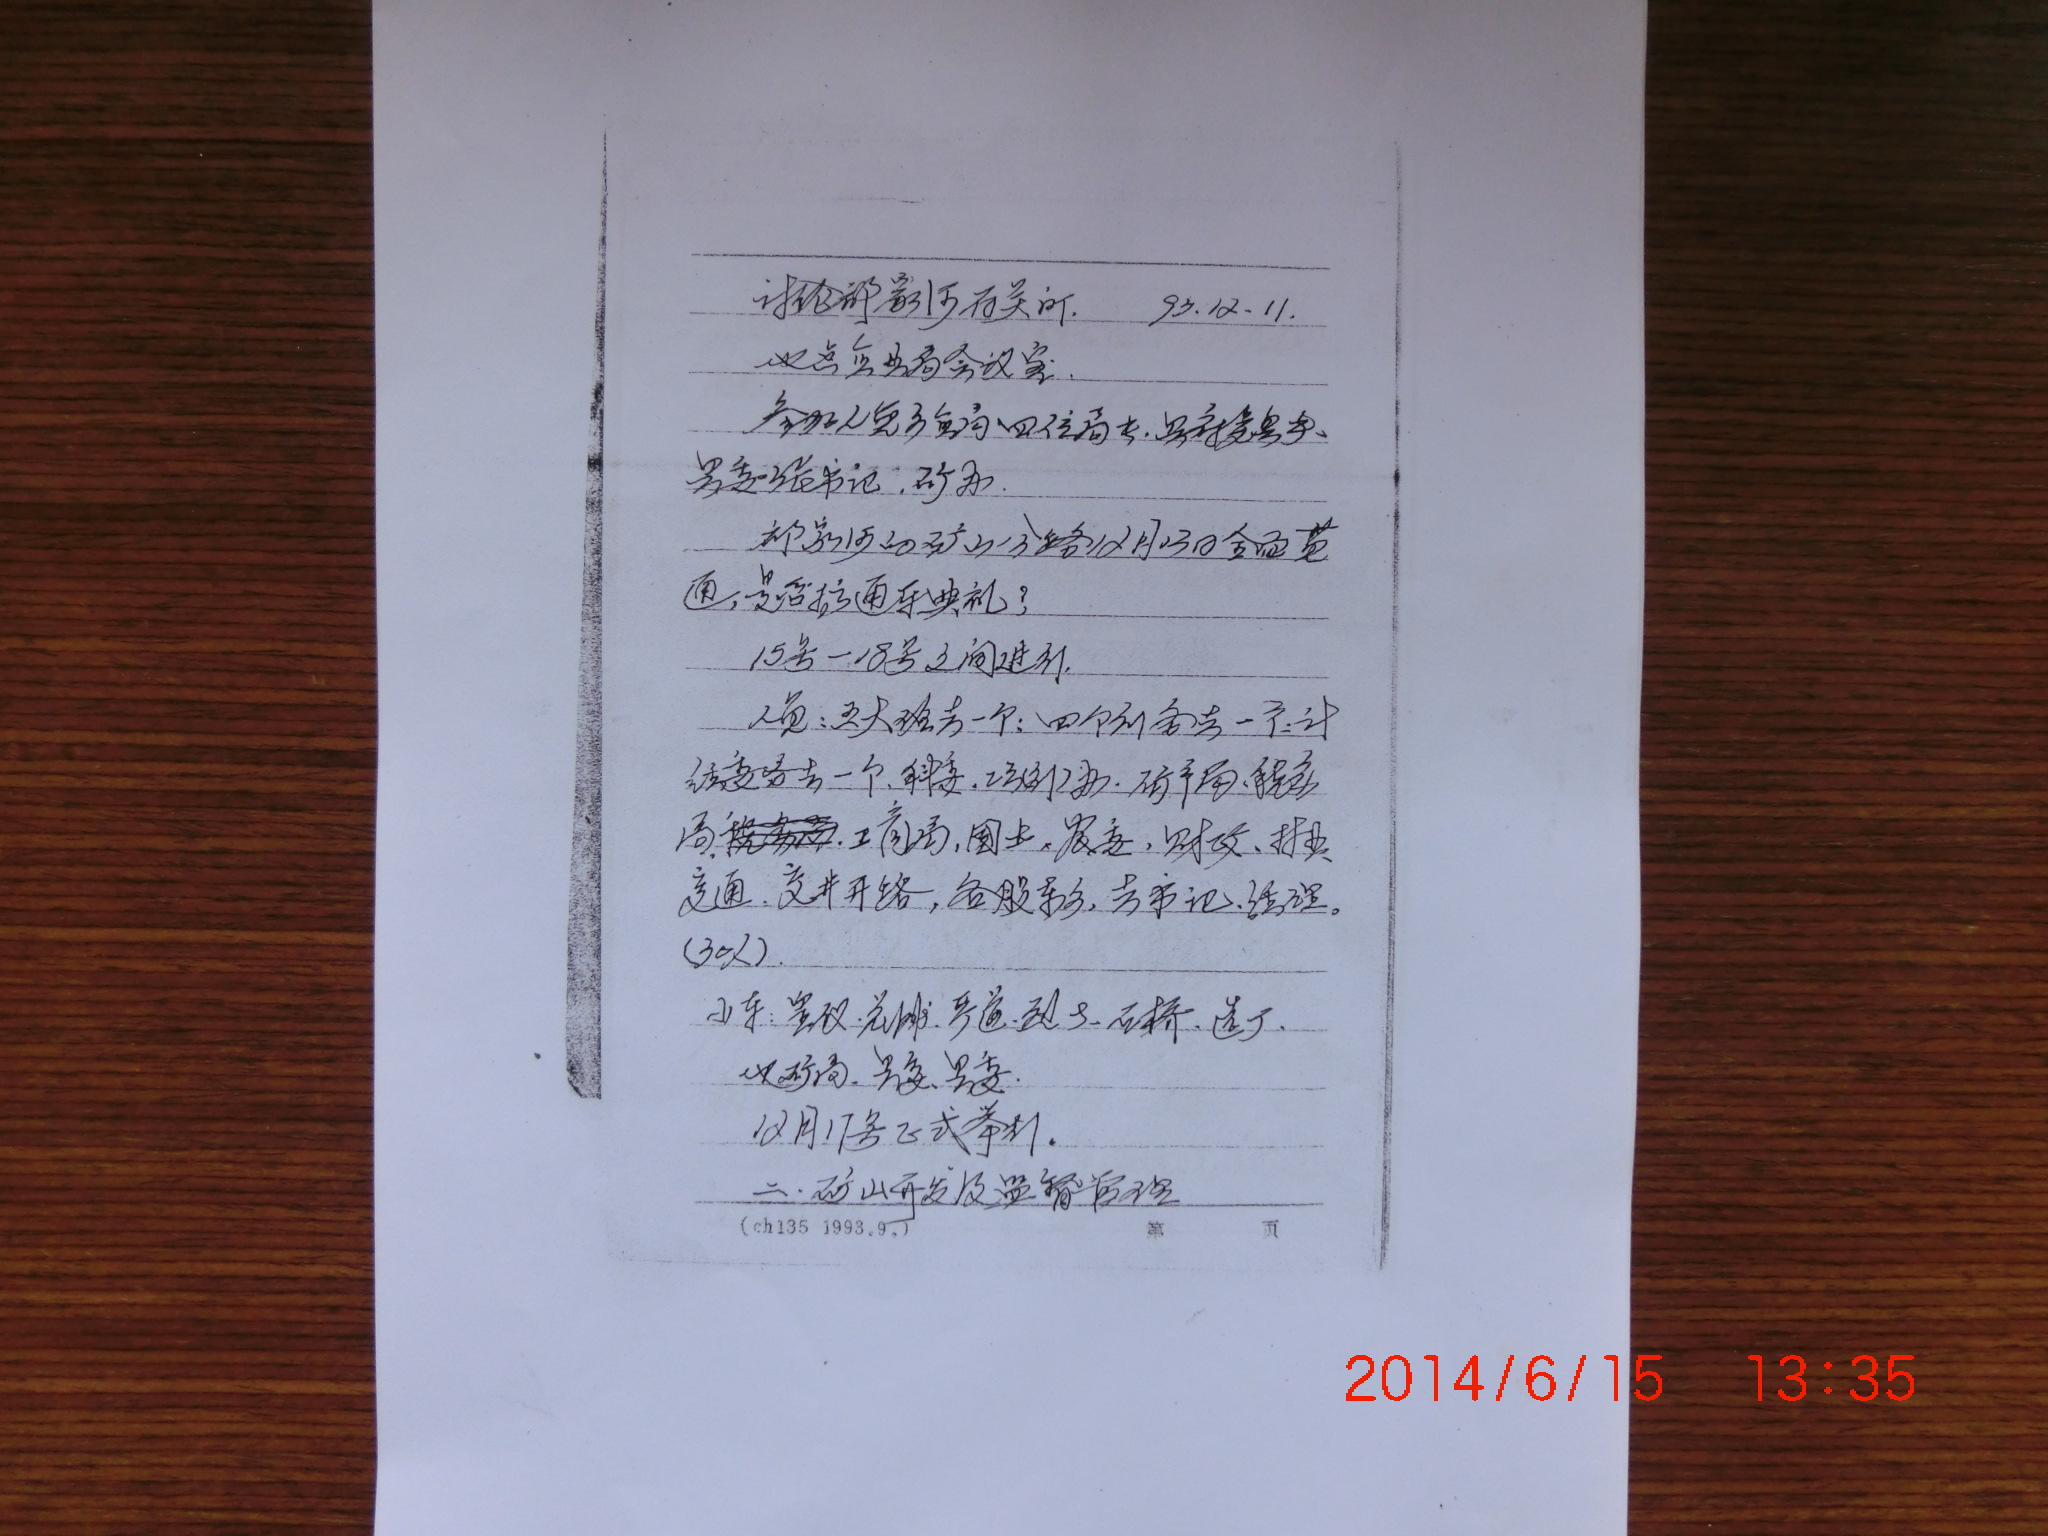 讨论邵家河有关的. 93.12.11.
地点企业局会议室.
参加人员 企局四位局长.县府
县委张书记.矿办.
邵家河的矿山公路12月13日全面贯
通,是否搞通车典礼?
15号—18号之间进行.
人员:五大班去一个;四个到 去一个:计
经委各去一个.科委. 办.矿产局.税务
局. 工商局,国土.农委,财政、林业
交通. ,各股东乡,去书记.经理。
(30人).
小车: 石桥.
地矿局.县委、县委.
12月17号正式举行.
二.矿山开发及监督管理
(ch135 1993.9.) 第 页
2014/6/15 13:35